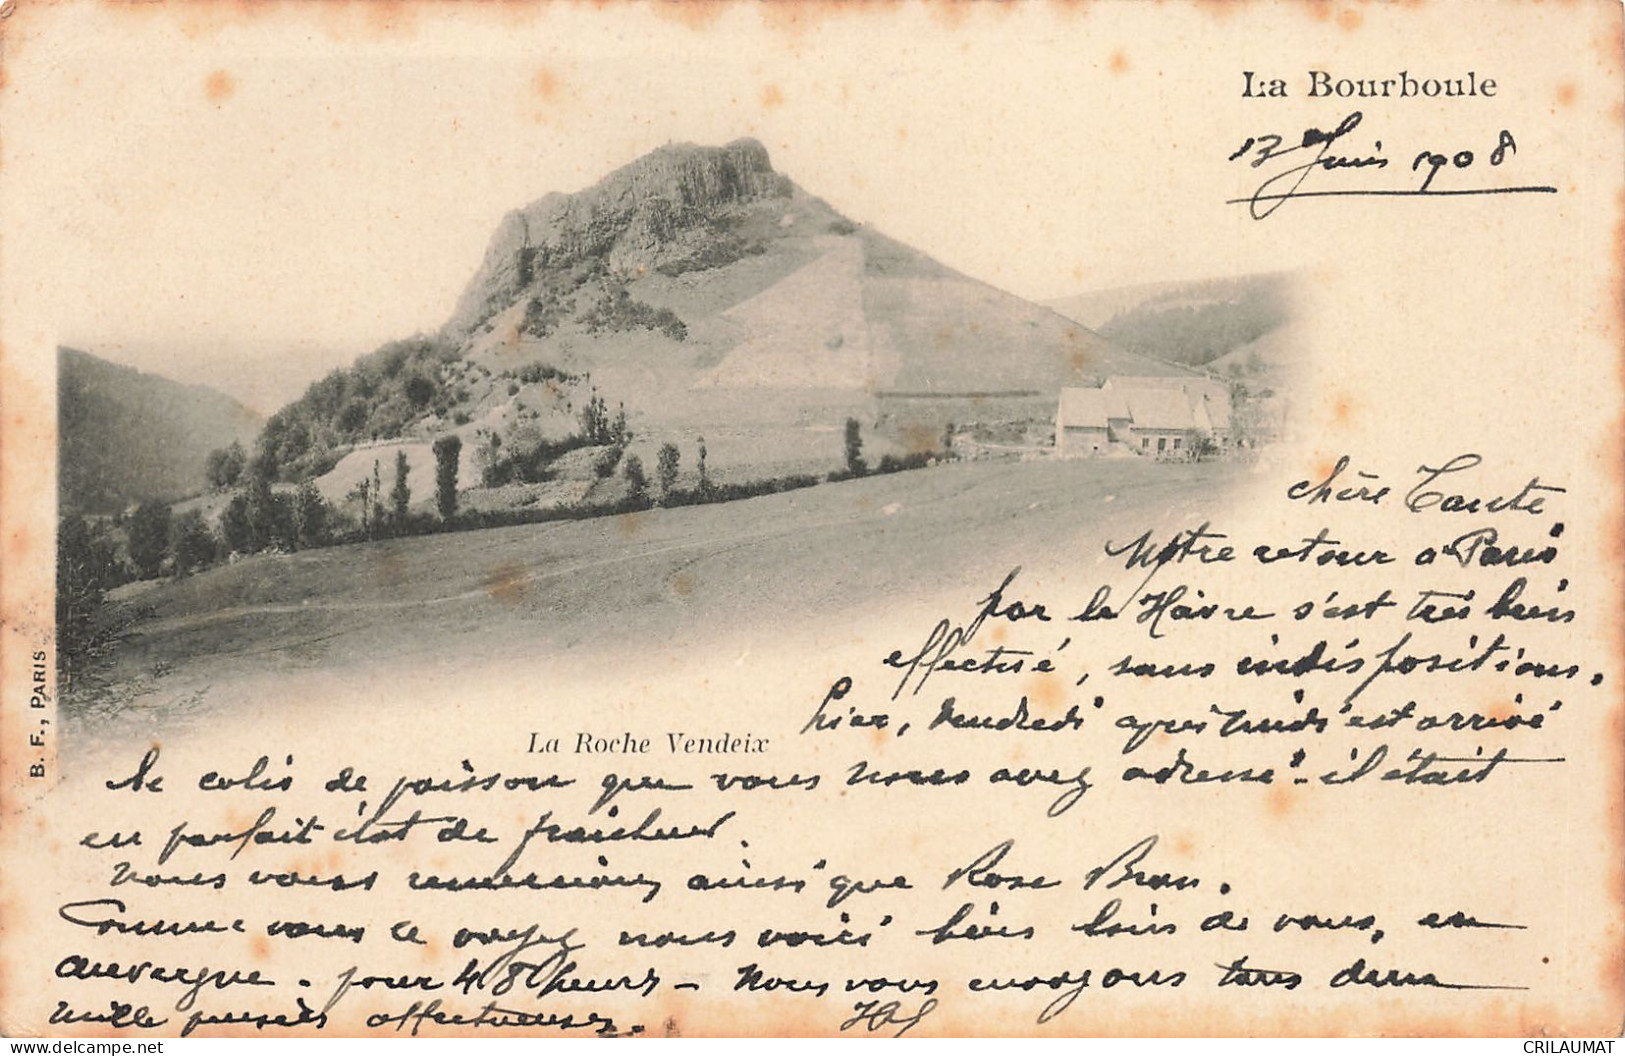 La Bourboule
13 Juin 1908
chère Tante
Notre retour à Paris
par le Hâvre s'est très bien
effectué, sans indispositions.
hier, Vendredi après midi est arrivé
le colis de poisson que vous nous avez adressé - il était
en parfait état de fraîcheur.
Nous vous remercions ainsi que Rose
Comme vous le voyez nous voici bien loin de vous, en
auvergne - pour 48 heures - Nous vous envoyons tous deux
mille pensées affectueuses.
La Roche Vendeix
B. F., PARIS
delcampe.net
CRILAUMAT